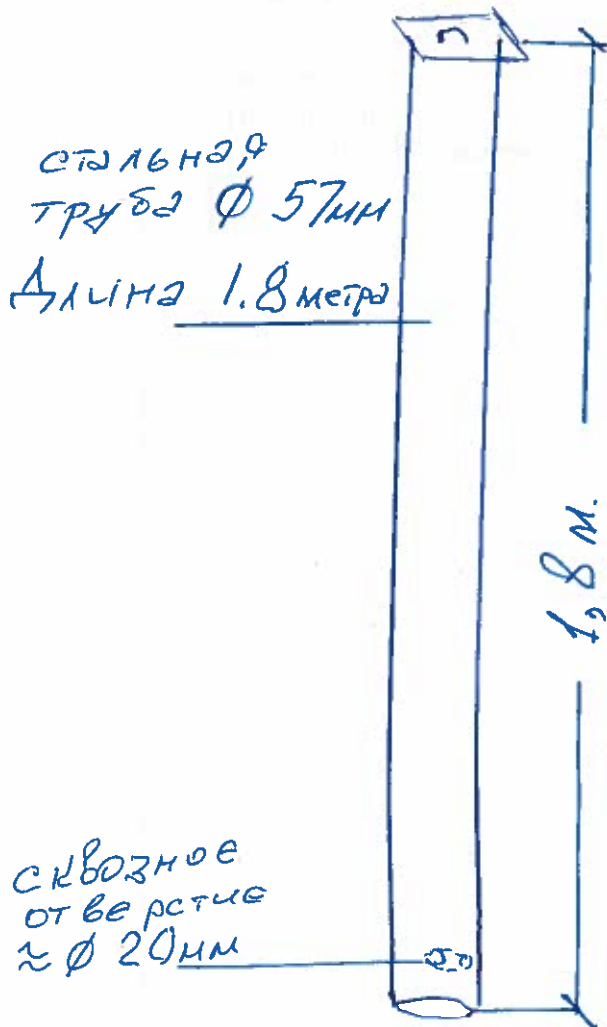 стальная
труба Ø 57мм
Длина 1.8 метра
1,8 м.
сквозное
отверстие
≈ Ø 20мм